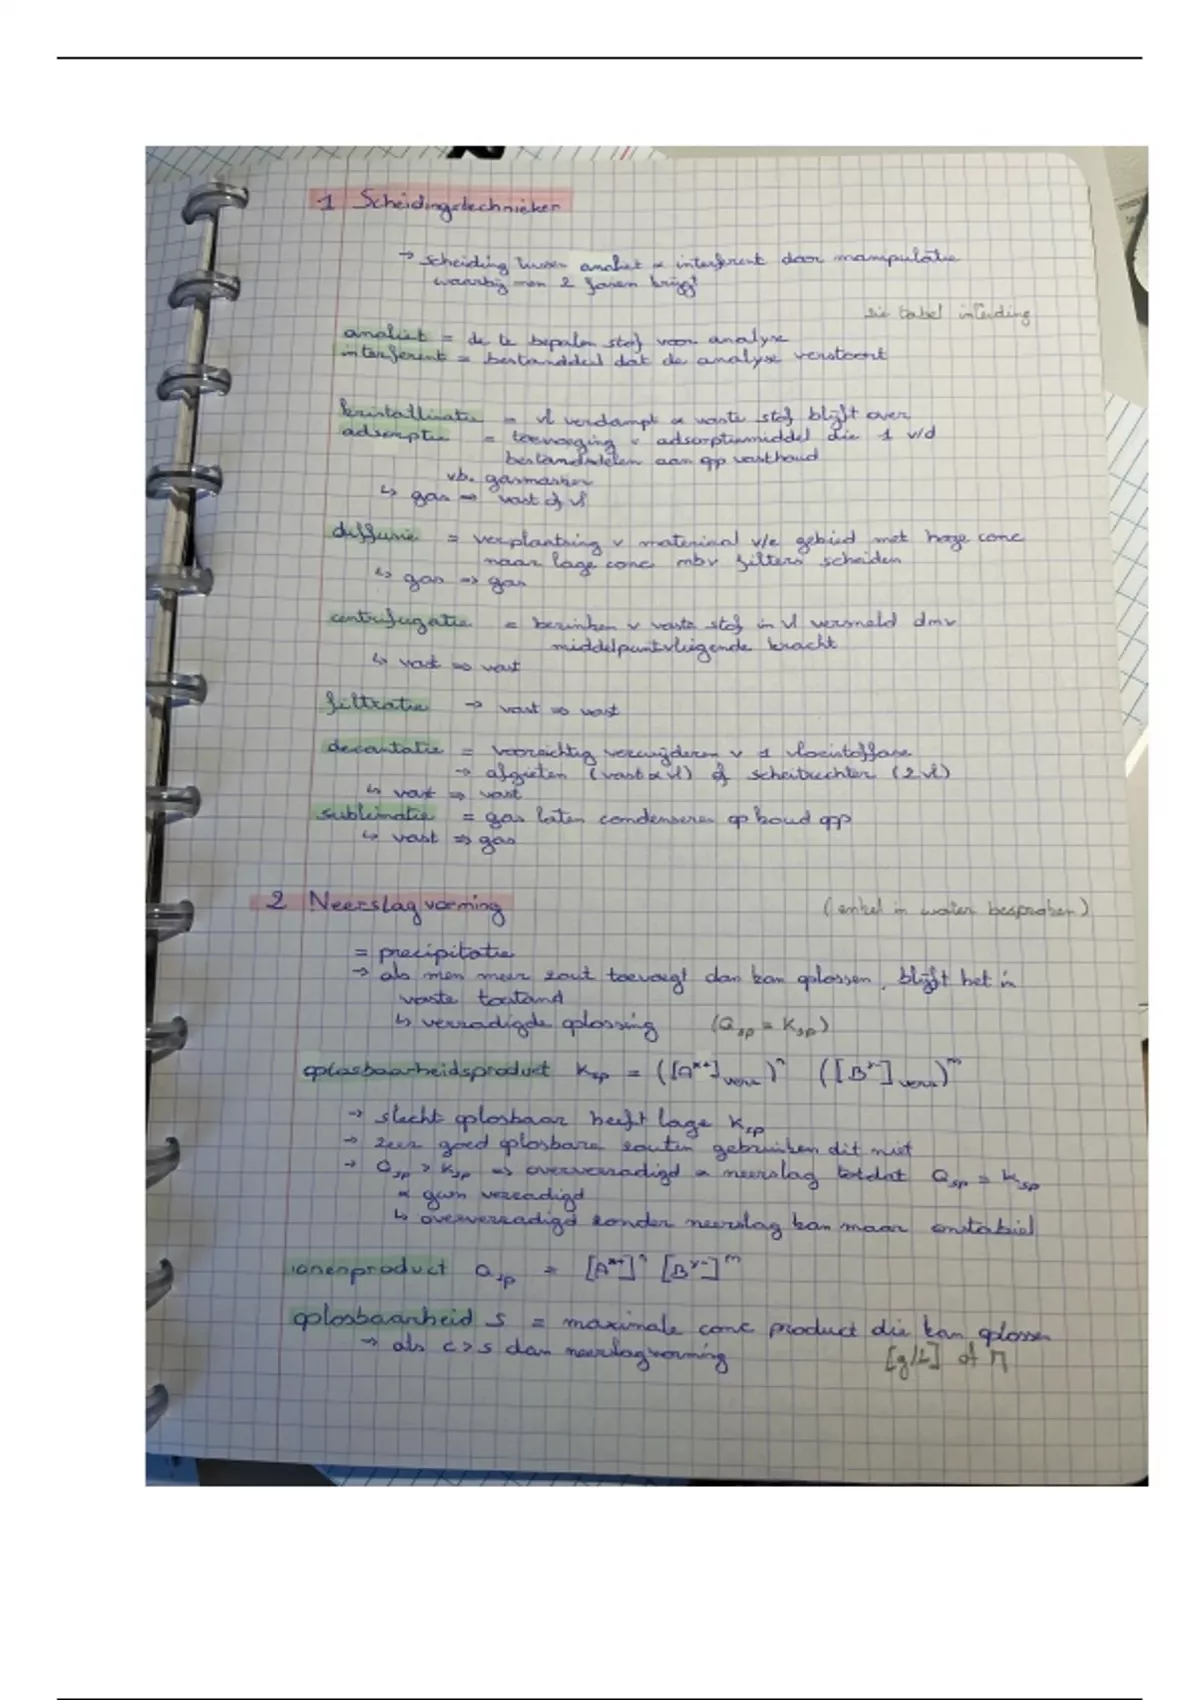 1 Scheidingstechnieken
→ scheiding tussen analiet & interferent door manipulatie
waarbij men 2 fasen krijgt
zie tabel inleiding
analiet = de te bepalen stof voor analyse
interferent = bestanddeel dat de analyse verstoort
kristallisatie = vl verdampt & vaste stof blijft over
adsorptie = toevoeging v adsorptiemiddel die 1 v/d
bestanddelen aan opp vasthoud
vb. gasmasker
↳ gas => vast of vl
diffusie = verplaatsing v materiaal v/e gebied met hoge conc
naar lage conc mbv filters scheiden
↳ gas => gas
centrifugatie = bezinken v vaste stof in vl versneld dmv
middelpuntvliegende kracht
↳ vast => vast
filtratie → vast => vast
decantatie = voorzichtig verwijderen v 1 vloeistoffase
→ afgieten (vast & vl) of scheitrechter (2 vl)
↳ vast => vast
sublimatie = gas laten condenseren op koud opp
↳ vast => gas
2 Neerslagvorming
(enkel in water besproken)
= precipitatie
→ als men meer zout toevoegt dan kan oplossen, blijft het in
vaste toestand
↳ verzadigde oplossing (Qsp = Ksp)
oplosbaarheidsproduct Ksp = ([Aˣ⁺]verz)ⁿ ([Bʸ⁻]verz)ᵐ
→ slecht oplosbaar heeft lage Ksp
→ zeer goed oplosbare zouten gebruiken dit niet
→ Qsp > Ksp => oververzadigd & neerslag totdat Qsp = Ksp
& gwn verzadigd
↳ oververzadigd zonder neerslag kan maar onstabiel
ionenproduct Qsp = [Aˣ⁺]ⁿ [Bʸ⁻]ᵐ
oplosbaarheid S = maximale conc product die kan oplossen
→ als c > s dan neerslagvorming [g/L] of M